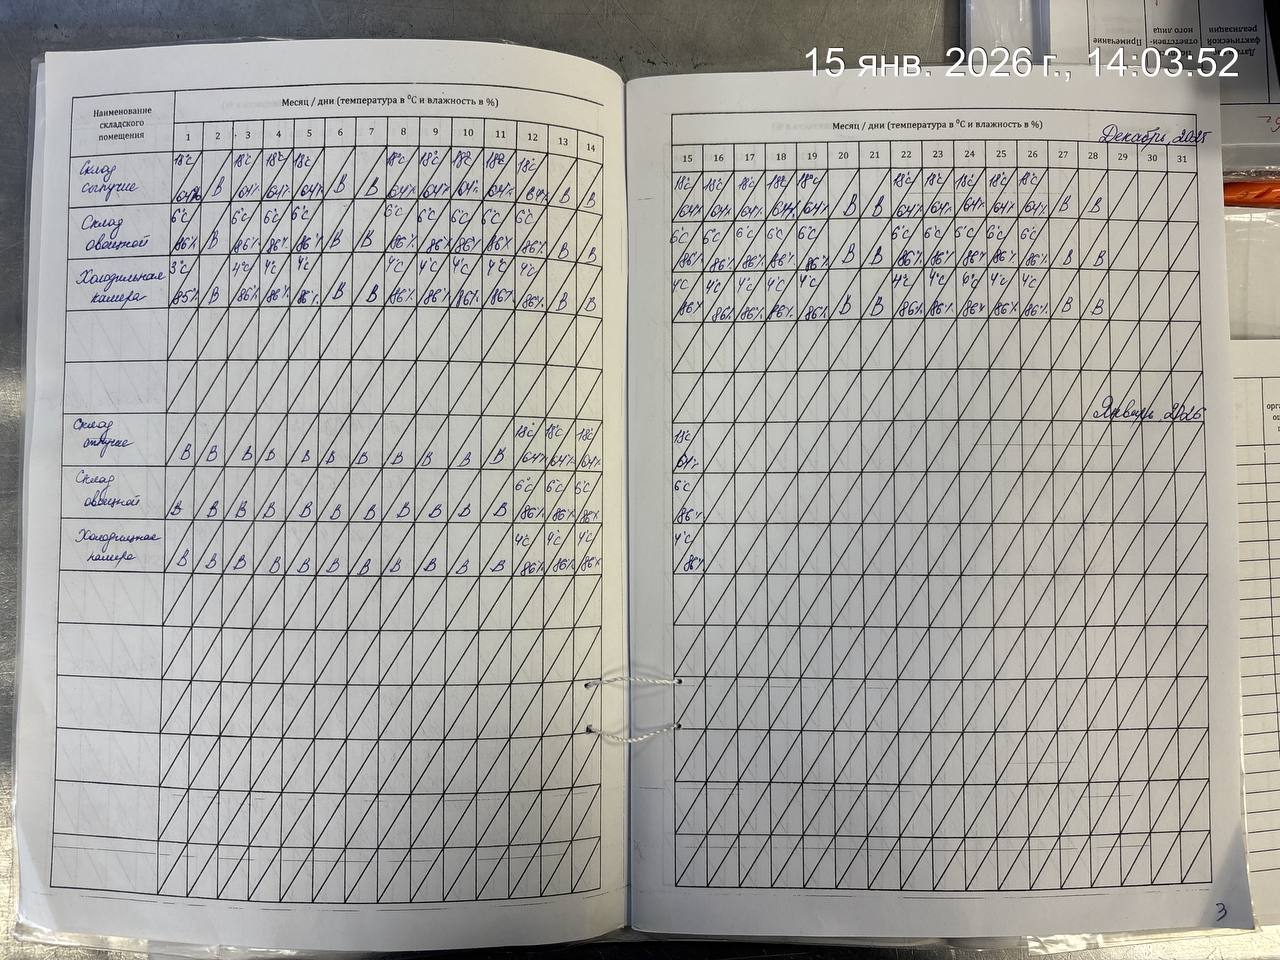 15 янв. 2026 г., 14:03:52
Наименование складского помещения
Месяц / дни (температура в ⁰С и влажность в %)
1 2 3 4 5 6 7 8 9 10 11 12 13 14
Склад сыпучие
18°С 64% В 18°С 64% 18°С 64% 18°С 64% В В 18°С 64% 18°С 64% 18°С 64% 18°С 64% 18°С 64% В В
Склад овощной
6°С 86% В 6°С 86% 6°С 86% 6°С 86% В В 6°С 86% 6°С 86% 6°С 86% 6°С 86% 6°С 86% В В
Холодильная камера
3°С 85% В 4°С 86% 4°С 86% 4°С 86% В В 4°С 86% 4°С 86% 4°С 86% 4°С 86% 4°С 86% В В
Склад
В В В В В В В В В В В 18°С 64% 18°С 64% 18°С 64%
Склад овощной
В В В В В В В В В В В 6°С 86% 6°С 86% 6°С 86%
Холодильная камера
В В В В В В В В В В В 4°С 86% 4°С 86% 4°С 86%
Месяц / дни (температура в ⁰С и влажность в %)
Декабрь, 2025
15 16 17 18 19 20 21 22 23 24 25 26 27 28 29 30 31
18°С 64% 18°С 64% 18°С 64% 18°С 64% 18°С 64% В В 18°С 64% 18°С 64% 18°С 64% 18°С 64% 18°С 64% В В
6°С 86% 6°С 86% 6°С 86% 6°С 86% 6°С 86% В В 6°С 86% 6°С 86% 6°С 86% 6°С 86% 6°С 86% В В
4°С 86% 4°С 86% 4°С 86% 4°С 86% 4°С 86% В В 4°С 86% 4°С 86% 86% 4°С 86% 4°С 86% В В
Январь, 2026
18°С 64%
6°С 86%
4°С 86%
3
Примечание